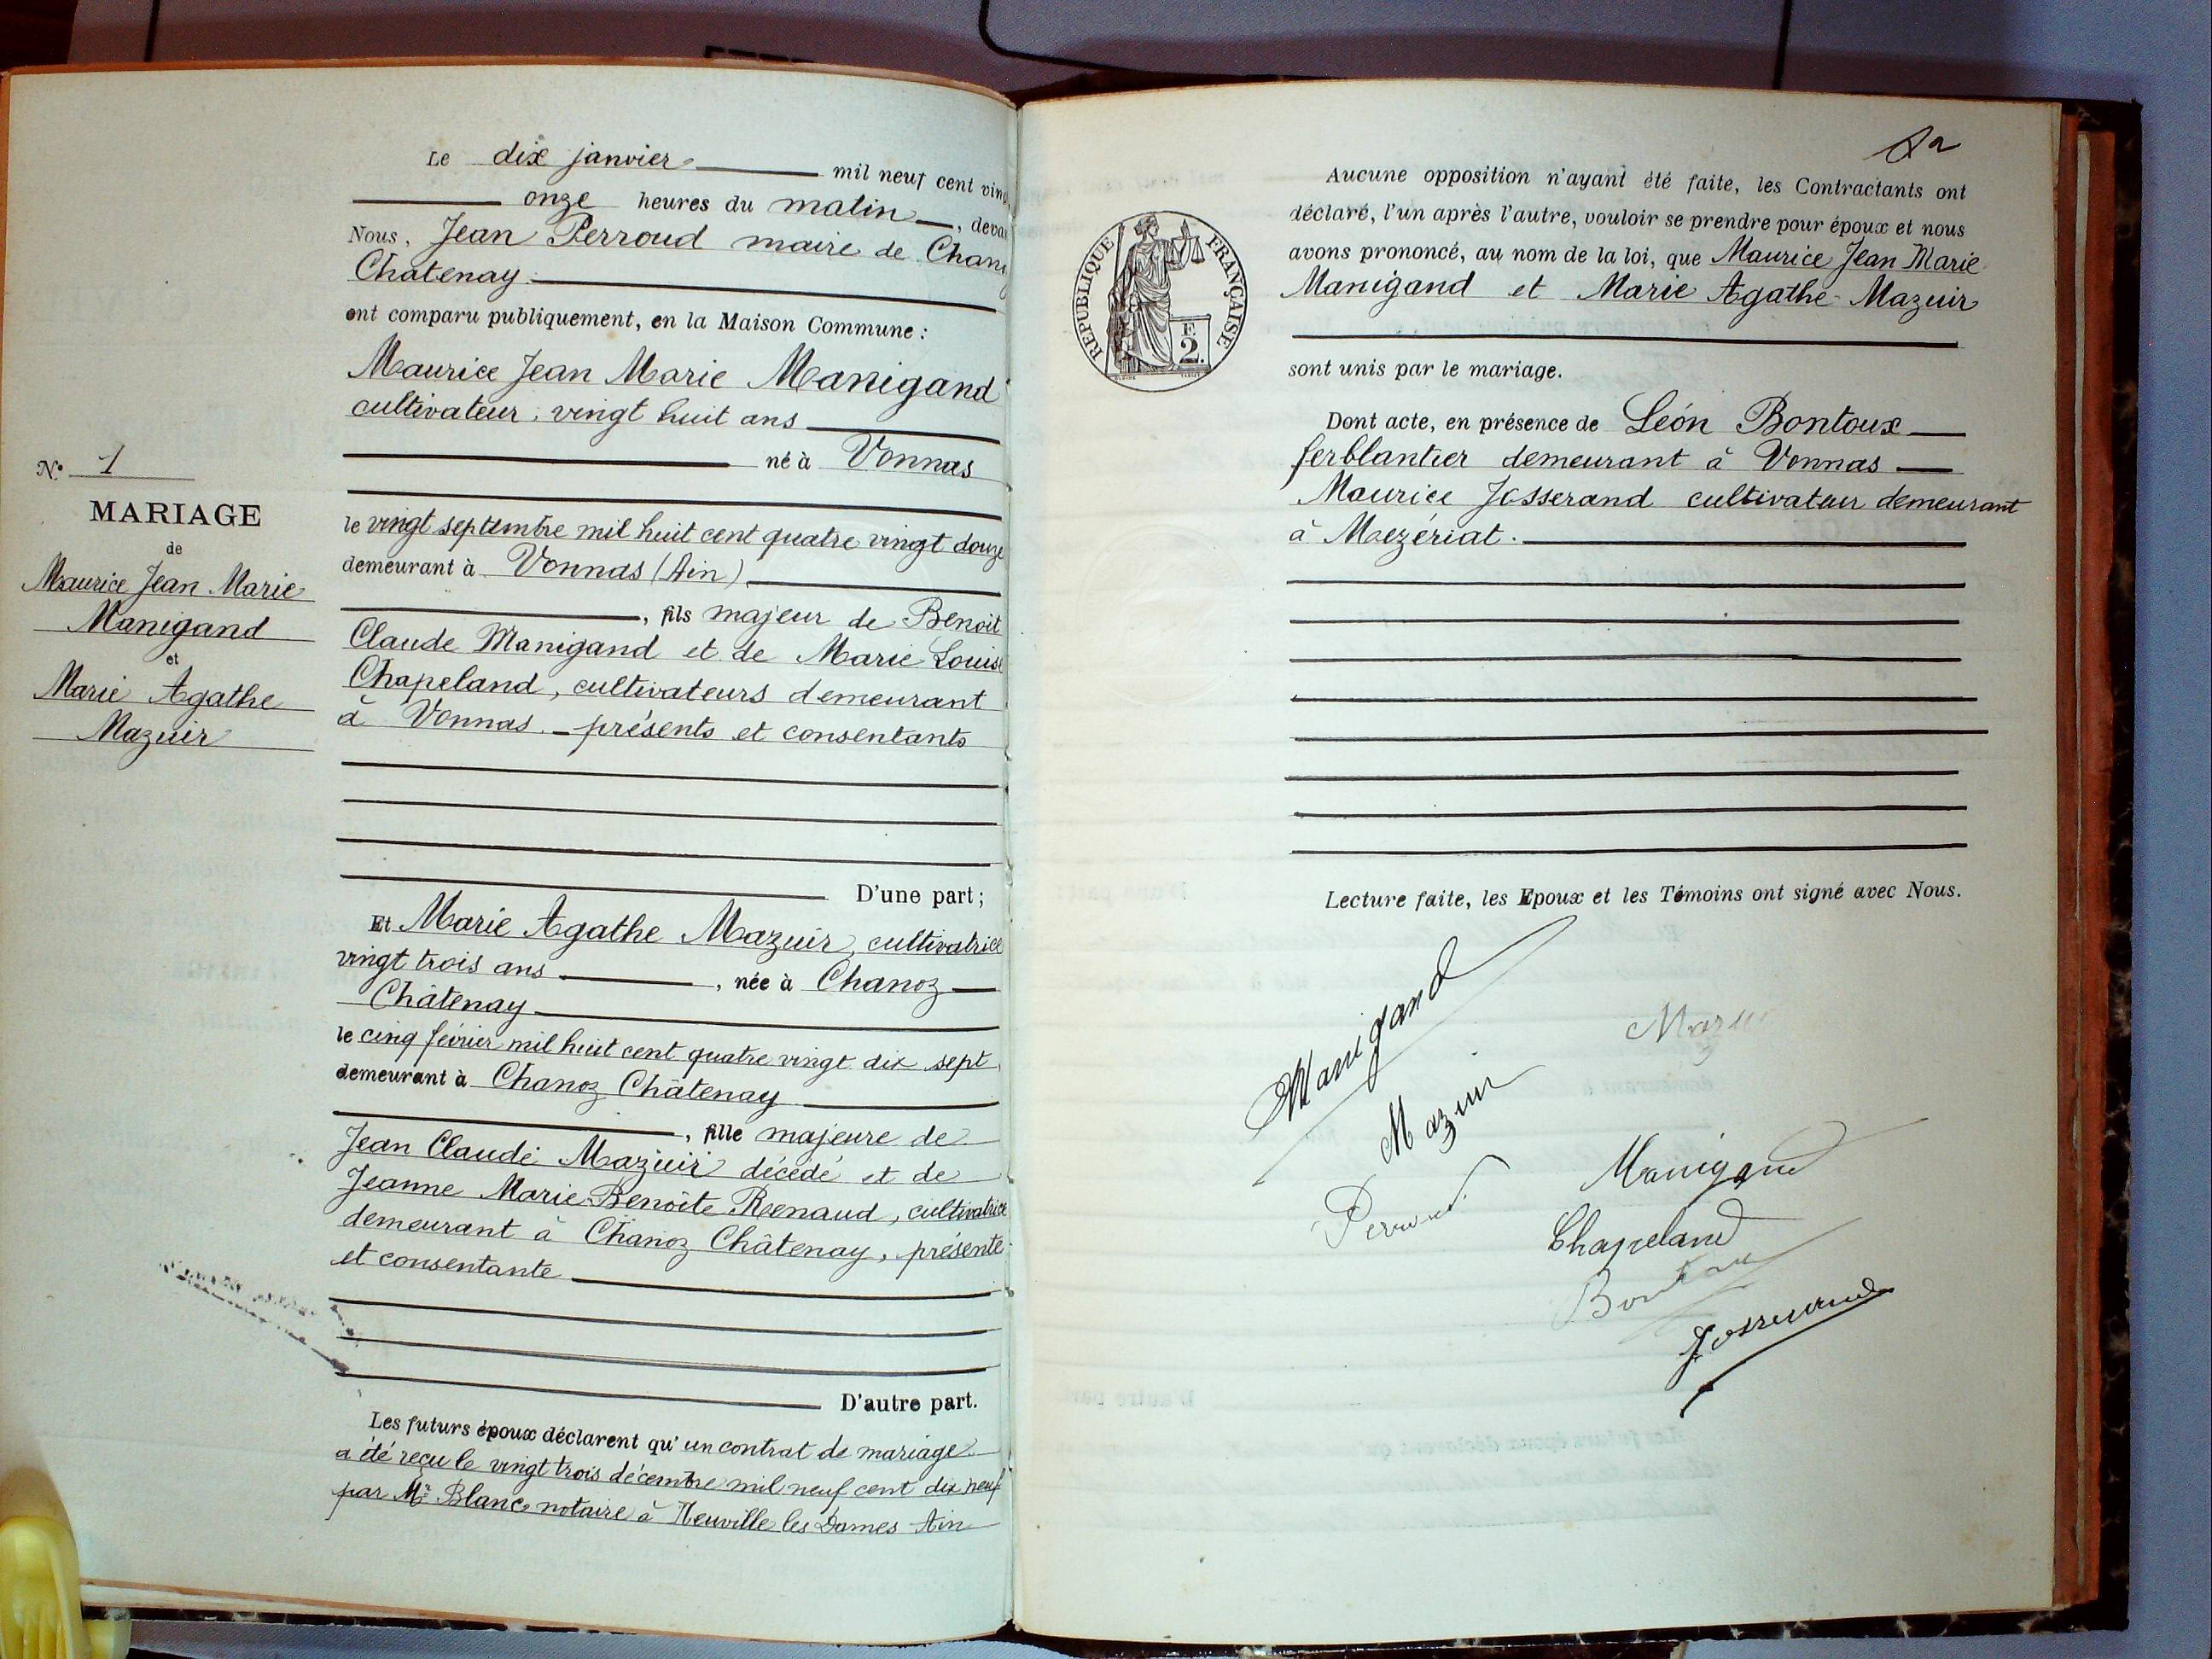 Le dix janvier mil neuf cent vin
onze heures du matin, deva
Nous, Jean Perroud maire de Chan
Chatenay.
ont comparu publiquement, en la Maison Commune :
Maurice Jean Marie Manigand
cultivateur, vingt huit ans
né à Vonnas
le vingt septembre mil huit cent quatre vingt douze
demeurant à Vonnas (Ain)
, fils majeur de Benoit
Claude Manigand et de Marie Louise
Chapeland, cultivateurs demeurant
à Vonnas. présents et consentants
D'une part ;
N° 1
MARIAGE
de
Maurice Jean Marie
Manigand
et
Marie Agathe
Mazuir
Et Marie Agathe Mazuir, cultivatrice
vingt trois ans, née à Chanoz
Châtenay
le cinq février mil huit cent quatre vingt dix sept
demeurant à Chanoz Châtenay
, fille majeure de
Jean Claude Mazuir décédé et de
Jeanne Marie Benoîte Renaud, cultivatrice
demeurant à Chanoz Châtenay, présente
et consentante
D'autre part.
Les futurs époux déclarent qu'un contrat de mariage
a été reçu le vingt trois décembre mil neuf cent dix neuf
par Me Blanc notaire à Neuville les Dames Ain
RÉPUBLIQUE FRANÇAISE
F.
2.
Aucune opposition n'ayant été faite, les Contractants ont
déclaré, l'un après l'autre, vouloir se prendre pour époux et nous
avons prononcé, au nom de la loi, que Maurice Jean Marie
Manigand et Marie Agathe Mazuir
sont unis par le mariage.
Dont acte, en présence de Léon Bontoux
ferblantier demeurant à Vonnas
Maurice Josserand cultivateur demeurant
à Mezériat.
Lecture faite, les Epoux et les Témoins ont signé avec Nous.
Manigand
Mazuir
Mazuir
Perroud
Manigand
Chapeland
Bontoux
Josserand